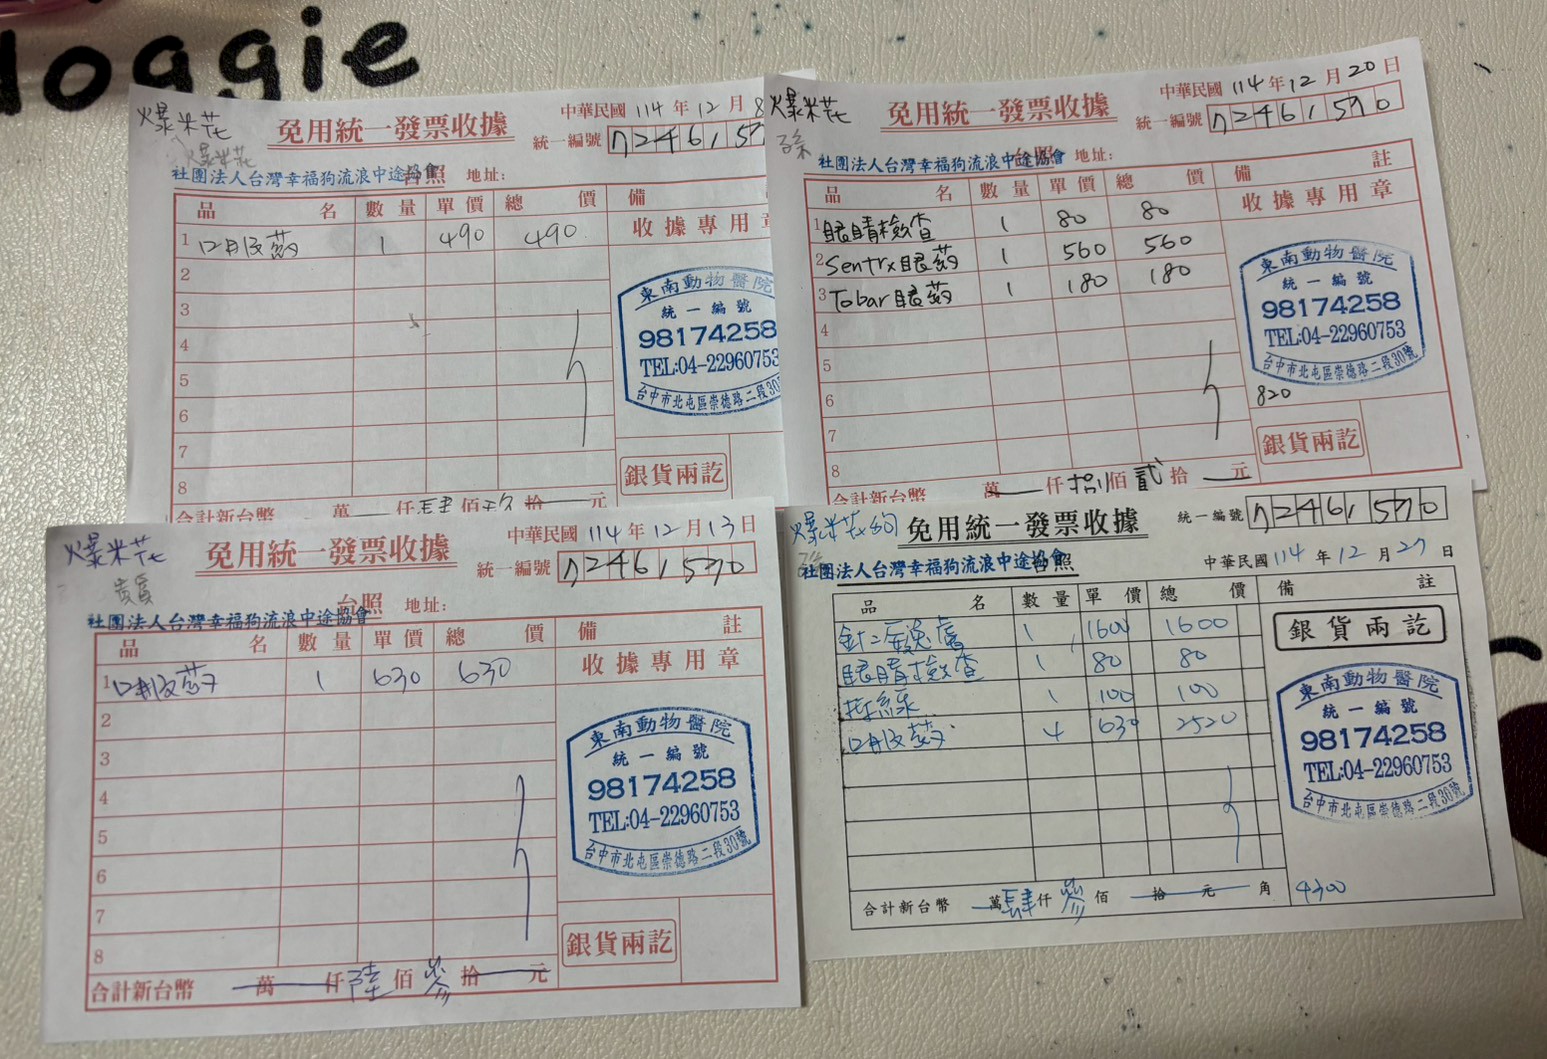 loggie
爆米花
爆米花
免用統一發票收據
中華民國 114 年 12 月 8
統一編號 7246157
社團法人台灣幸福狗流浪中途協會 台照 地址:
品名 數量 單價 總價 備
1 口服藥 1 490 490
收據專用章
2
3
4
5
6
7
8
東南動物醫院
統一編號
98174258
TEL:04-22960753
台中市北屯區崇德路二段30
銀貨兩訖
合計新台幣 萬 仟 肆 佰 玖 拾 元
爆米花
免用統一發票收據
中華民國 114 年 12 月 20 日
統一編號 72461570
社團法人台灣幸福狗流浪中途協會 台照 地址:
品名 數量 單價 總價 備註
1 眼睛檢查 1 80 80
2 Sentrx眼藥 1 560 560
3 Tobar眼藥 1 180 180
4
5
6
7
8
收據專用章
東南動物醫院
統一編號
98174258
TEL:04-22960753
台中市北屯區崇德路二段30號
820
銀貨兩訖
合計新台幣 萬 仟 捌 佰 貳 拾 元
爆米花
免用統一發票收據
中華民國 114 年 12 月 13 日
統一編號 72461570
社團法人台灣幸福狗流浪中途協會 台照 地址:
品名 數量 單價 總價 備註
1 口服藥 1 630 630
2
3
4
5
6
7
8
收據專用章
東南動物醫院
統一編號
98174258
TEL:04-22960753
台中市北屯區崇德路二段30號
銀貨兩訖
合計新台幣 萬 仟 陸 佰 參 拾 元
爆米花的
免用統一發票收據
統一編號 72461570
社團法人台灣幸福狗流浪中途協會 台照
中華民國 114 年 12 月 27 日
品名 數量 單價 總價 備註
1 1600 1600
眼睛檢查 1 80 80
拆線 1 100 100
口服藥 4 630 2520
銀貨兩訖
東南動物醫院
統一編號
98174258
TEL:04-22960753
台中市北屯區崇德路二段30號
合計新台幣 萬 肆 仟 參 佰 拾 元 角
4300